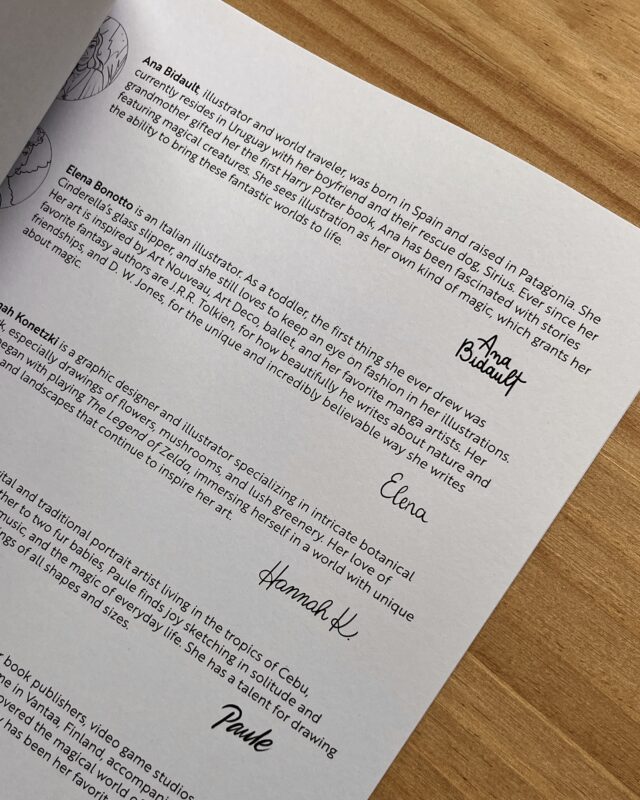 Ana Bidault, illustrator and world traveler, was born in Spain and raised in Patagonia. She
currently resides in Uruguay with her boyfriend and their rescue dog, Sirius. Ever since her
grandmother gifted her the first Harry Potter book, Ana has been fascinated with stories
featuring magical creatures. She sees illustration as her own kind of magic, which grants her
the ability to bring these fantastic worlds to life.
Ana
Bidault
Elena Bonotto is an Italian illustrator. As a toddler, the first thing she ever drew was
Cinderella's glass slipper, and she still loves to keep an eye on fashion in her illustrations.
Her art is inspired by Art Nouveau, Art Deco, ballet, and her favorite manga artists. Her
favorite fantasy authors are J.R.R. Tolkien, for how beautifully he writes about nature and
friendships, and D. W. Jones, for the unique and incredibly believable way she writes
about magic.
Elena
nah Konetzki is a graphic designer and illustrator specializing in intricate botanical
k, especially drawings of flowers, mushrooms, and lush greenery. Her love of
egan with playing The Legend of Zelda, immersing herself in a world with unique
and landscapes that continue to inspire her art.
Hannah K.
ital and traditional portrait artist living in the tropics of Cebu,
ther to two fur babies, Paule finds joy sketching in solitude and
music, and the magic of everyday life. She has a talent for drawing
ngs of all shapes and sizes.
Paule
r book publishers, video game studios
me in Vantaa, Finland, accompani
overed the magical world of
y has been her favorit